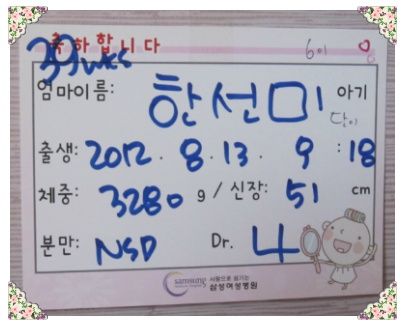 축하합니다
39wks
6이
엄마이름: 한선미 아기
단이
출생: 2012. 8. 13. 9 : 18
체중: 3280 g / 신장: 51 cm
분만: NSD Dr. 4
samsung 사랑으로 섬기는
삼성여성병원